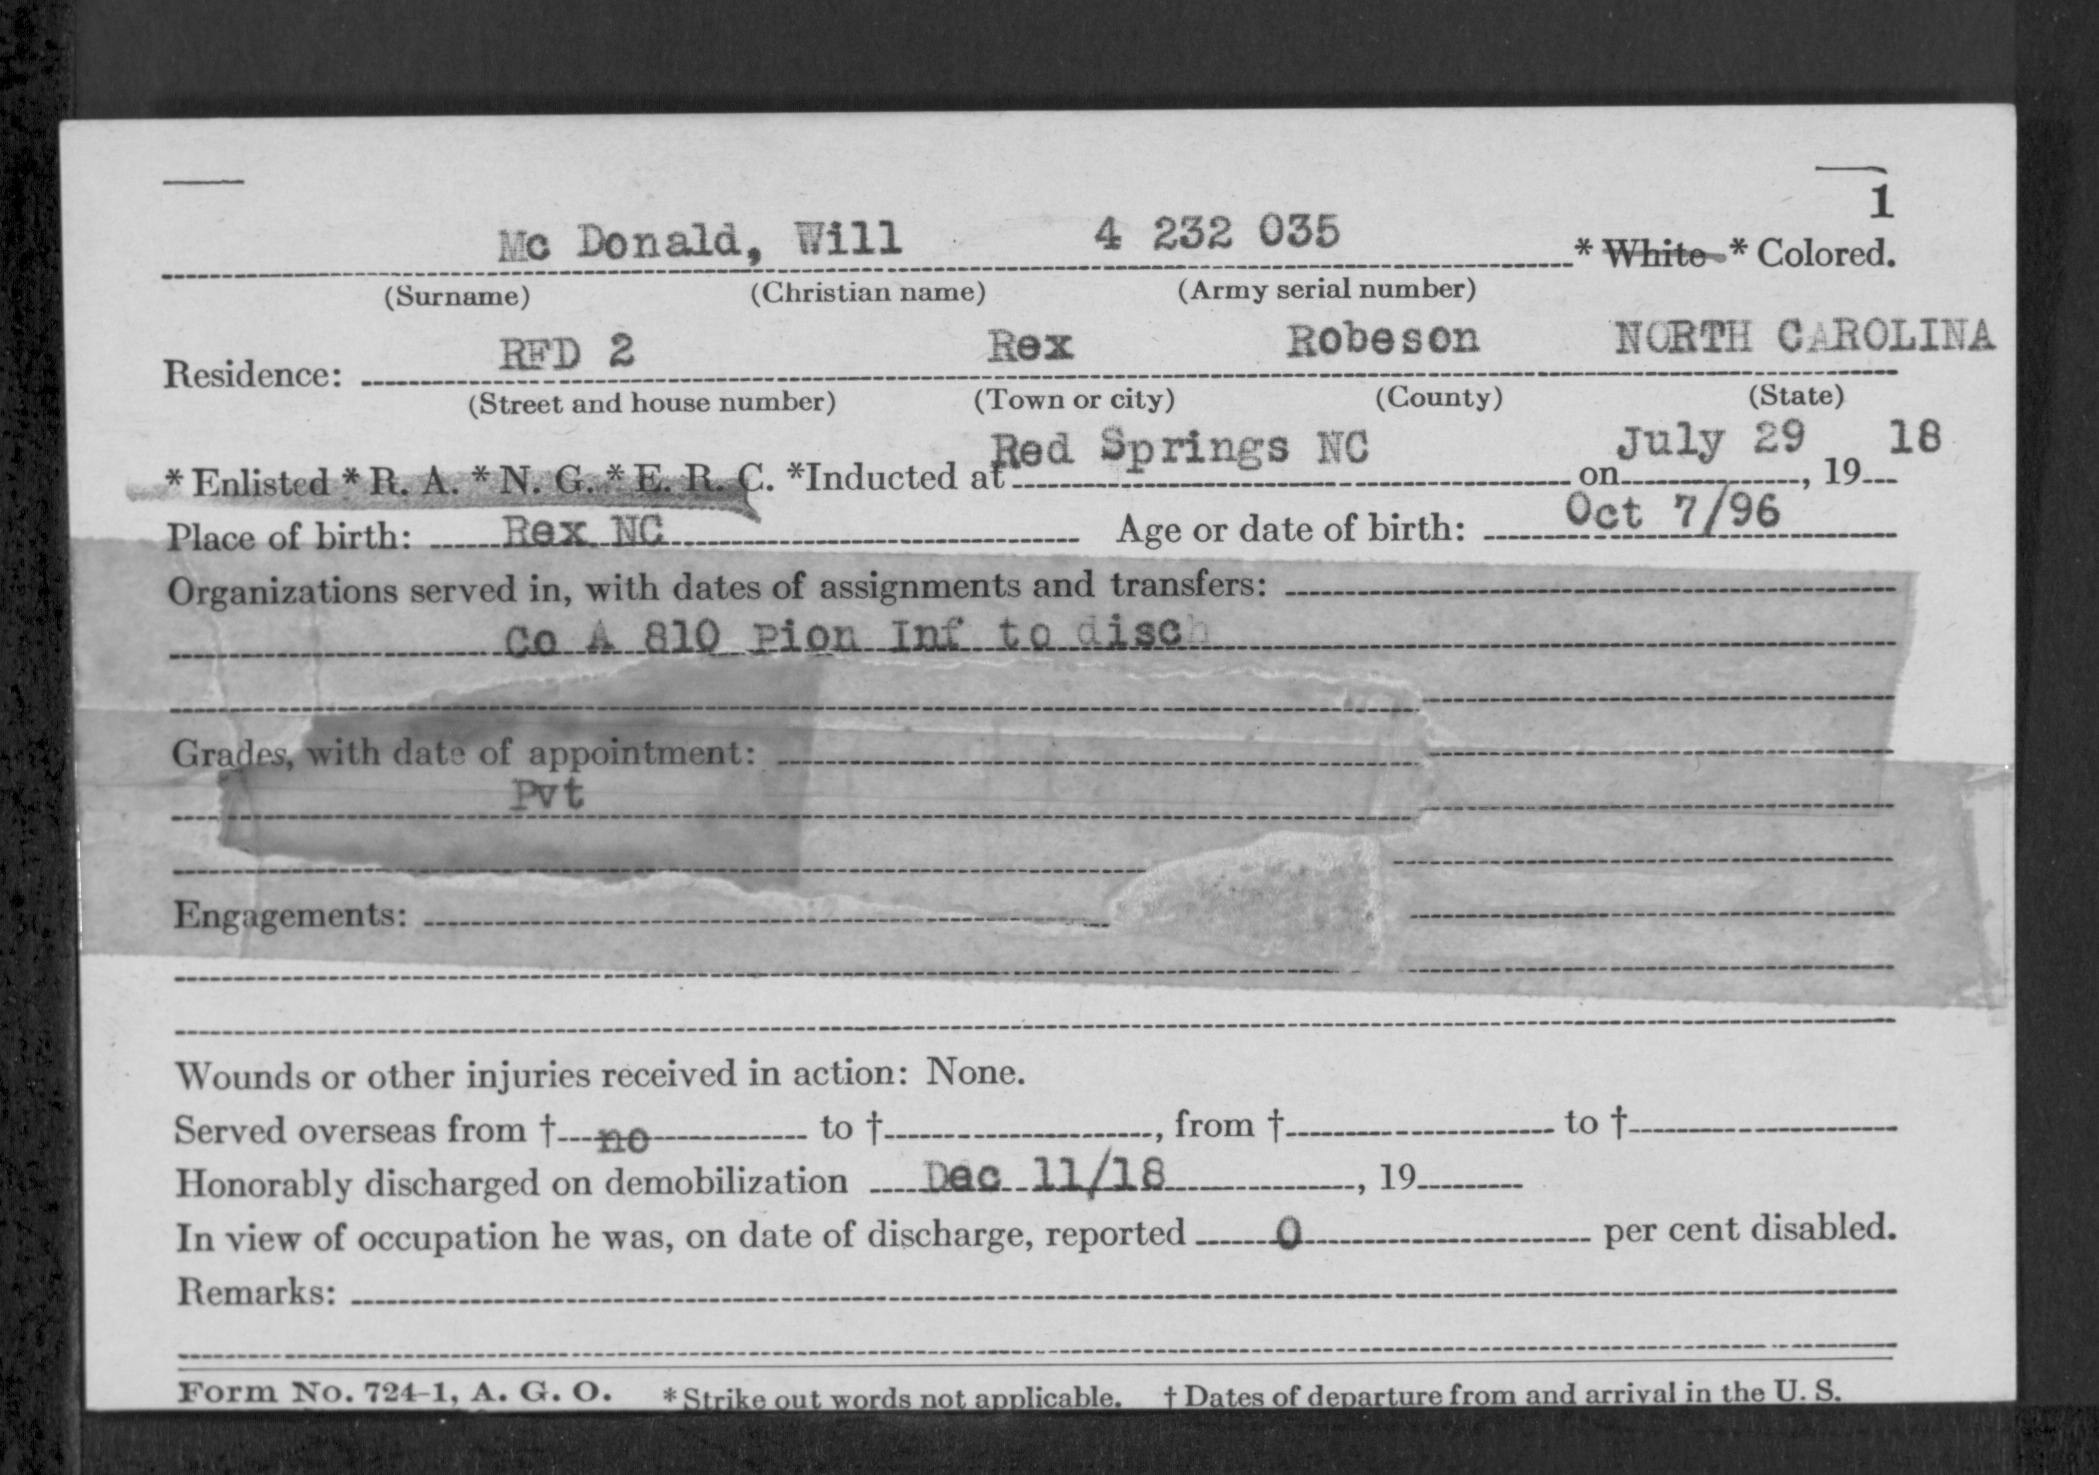 1
Mc Donald, Will 4 232 035 * White * Colored.
(Surname) (Christian name) (Army serial number)
Residence: RFD 2 Rex Robeson NORTH CAROLINA
(Street and house number) (Town or city) (County) (State)
* Enlisted * R. A. * N. G. * E. R. C. *Inducted at Red Springs NC on July 29, 19 18
Place of birth: Rex NC Age or date of birth: Oct 7/96
Organizations served in, with dates of assignments and transfers:
Co A 810 Pion Inf to disch
Grades, with date of appointment:
Pvt
Engagements:
Wounds or other injuries received in action: None.
Served overseas from † no to †, from † to †
Honorably discharged on demobilization Dec 11/18, 19
In view of occupation he was, on date of discharge, reported 0 per cent disabled.
Remarks:
Form No. 724-1, A. G. O. * Strike out words not applicable. † Dates of departure from and arrival in the U. S.